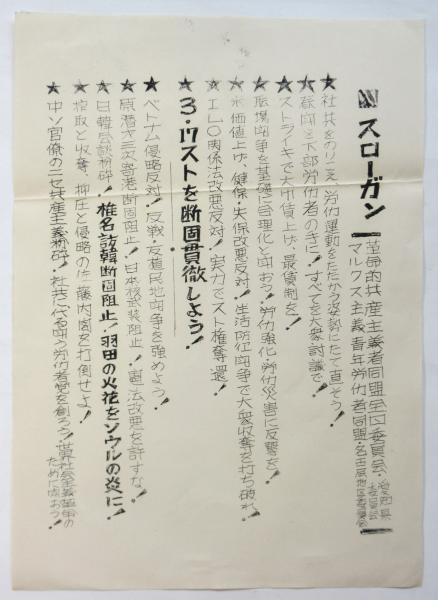 スローガン
革命的共産主義者同盟全国委員会・愛知県委員会
マルクス主義青年労仂者同盟・名古屋地区委員会
★社共をのりこえ、労仂運動をたたかう姿勢にたて直そう！
★春闘を下部労仂者の手に！すべてを大衆討議で！
★ストライキで大巾賃上げ、最賃制を！
★職場闘争を基礎に合理化と闘おう！労仂強化・労仂災害に反撃を！
★物価値上げ、健保・失保改悪反対！生活防衛闘争で大衆収奪を打ち破れ！
★ILO関係法改悪反対！実力でスト権奪還！
3・17ストを断固貫徹しよう！
★ベトナム侵略反対！反戦・反植民地闘争を強めよう！
★原潜オ三次寄港断固阻止！日本核武装阻止！憲法改悪を許すな！
★日韓会談粉砕！椎名訪韓断固阻止！羽田の火花をソウルの炎に！
★搾取と収奪、抑圧と侵略の佐藤内閣を打倒せよ！
★中ソ官僚のニセ共産主義粉砕！社共に代る闘う労仂者党を創ろう！世界社会主義革命のために闘おう！